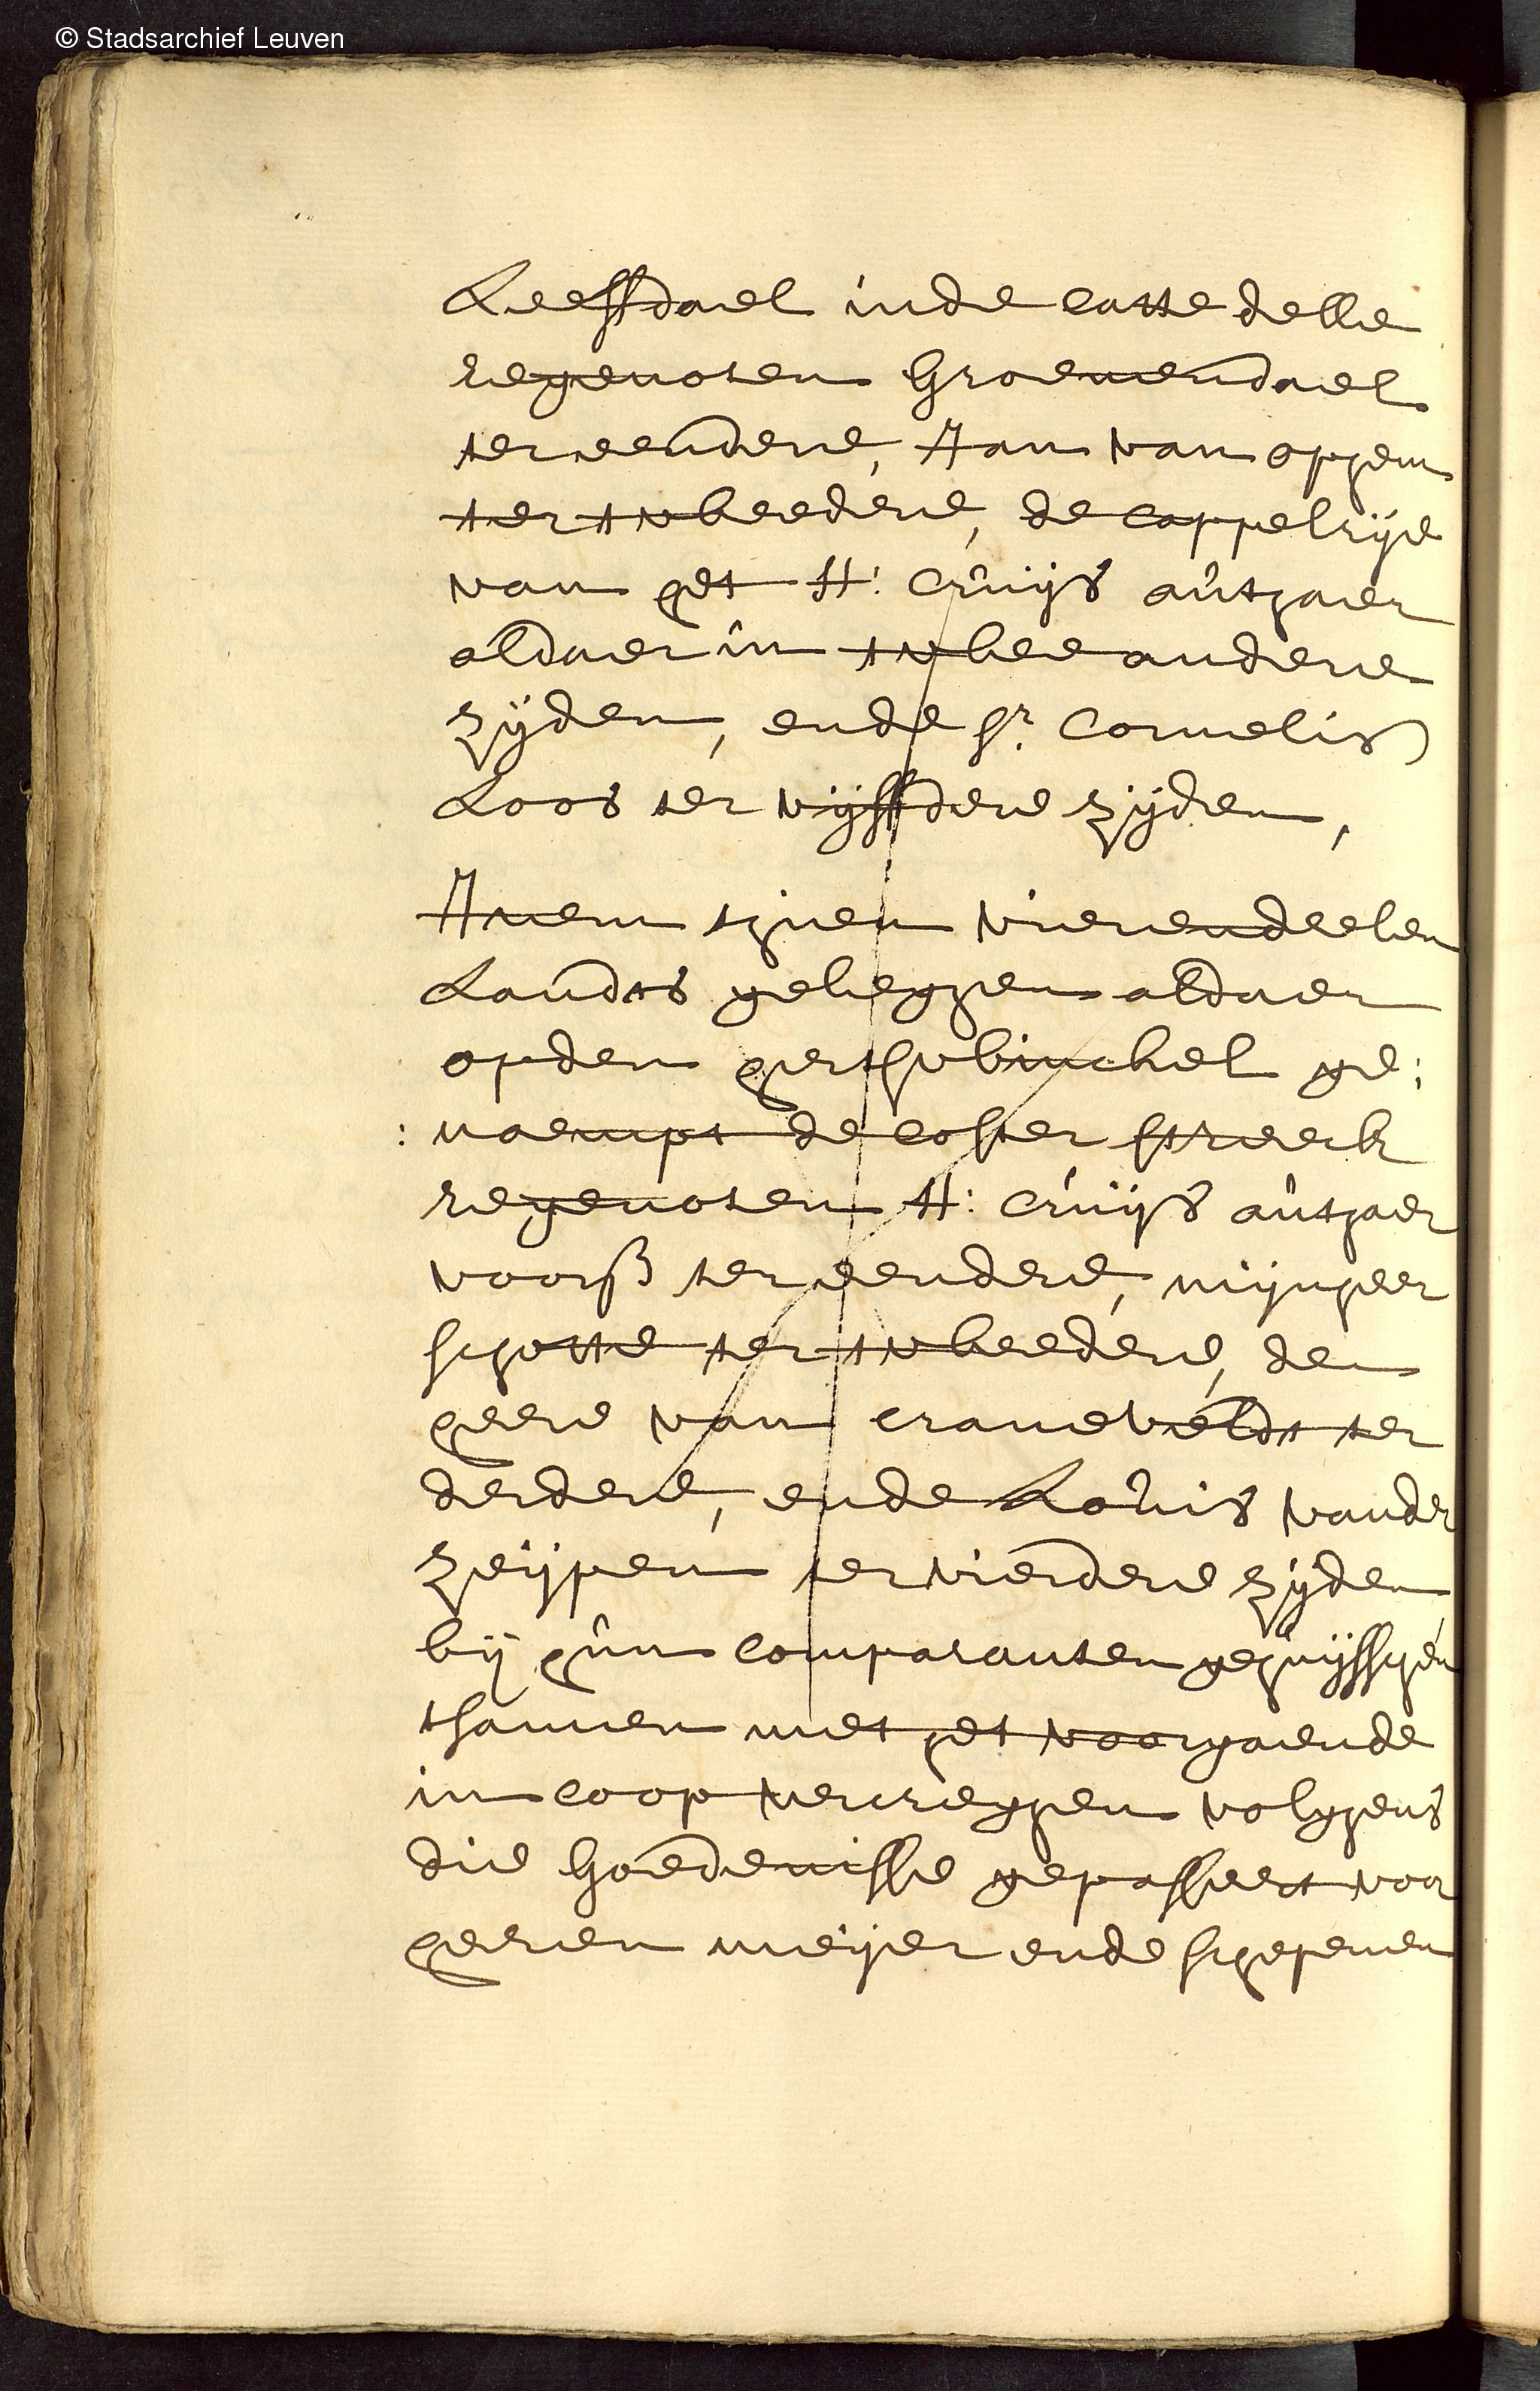 © Stadsarchief Leuven
Leeffdael inde catte delle
regenoten Groenendael
ter eendere, Jan van oppem
ter tweedere, de cappelrije
van het H: Cruijs autaer
aldaer in twee andere
zijden, ende Sr. Cornelis
Loos ter vijffdere zijden,
Item thien vierendeelen
Landts geleghen aldaer
opden hertswinckel ge:
: naempt de coster streeck
regenoten H: Cruijs autaer
voors ter eendere, mijnheer
schotte ter tweedere, de
heere van craneveldt ter
derdere, ende Louis vander
zeijpen ter vierdere zijden
bij hun comparanten
tsamen met het voorgaende
in coop vercreghen volghens
die Goedenisse gepasseert voor
heeren meijer ende schepenen